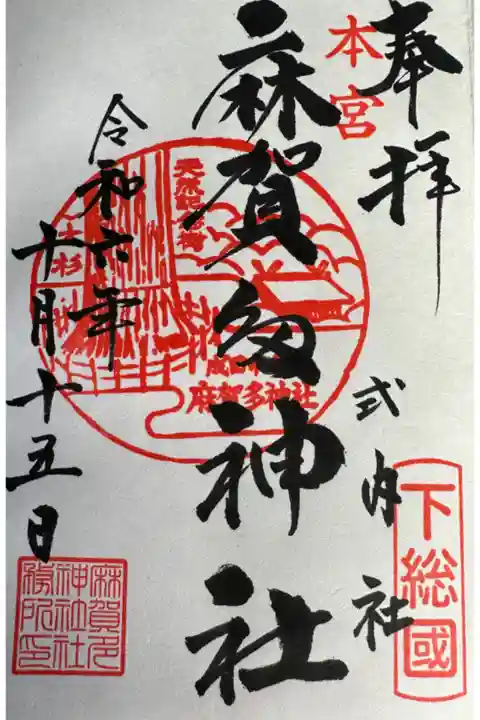 奉拝
本宮
式内社
下総國
麻賀多神社
天然記念樹
大杉
麻賀多神社
令和六年
十月十五日
麻賀多
神社社
務所印